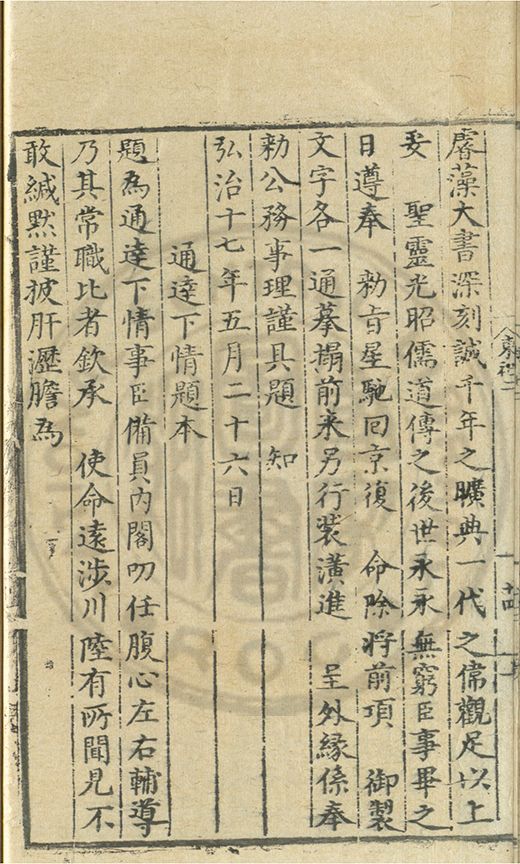 睿藻大書深刻誠千年之曠典一代之偉觀足以上
妥 聖靈光昭儒道傳之後世永永無窮臣事畢之
日遵奉 勑旨星馳回京復 命除將前項 御製
文字各一通摹搨前來另行裝潢進 呈外緣係奉
勑公務事理謹具題 知
弘治十七年五月二十六日
通達下情題本
題為通達下情事臣備員內閣叨任腹心左右輔導
乃其常職比者欽承 使命遠涉川陸有所聞見不
敢緘默謹披肝瀝膽為